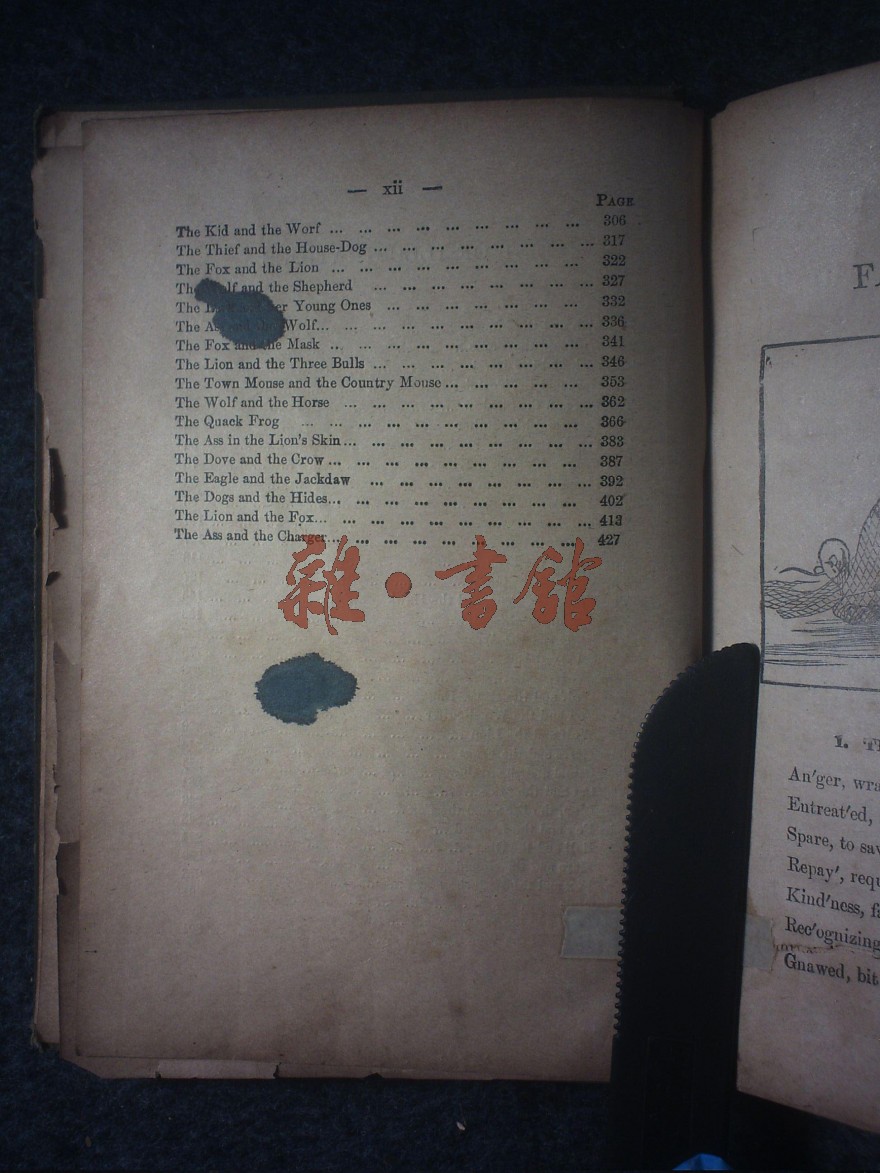 — xii —
PAGE
The Kid and the Worf ... ... ... ... ... ... ... ... ... 306
The Thief and the House-Dog ... ... ... ... ... ... ... ... 317
The Fox and the Lion ... ... ... ... ... ... ... ... ... 322
The and the Shepherd ... ... ... ... ... ... ... ... 327
The Young Ones ... ... ... ... ... ... ... 332
The Wolf... ... ... ... ... ... ... ... ... ... 336
The Fox and the Mask ... ... ... ... ... ... ... ... ... 341
The Lion and the Three Bulls ... ... ... ... ... ... ... ... 346
The Town Mouse and the Country Mouse ... ... ... ... ... 353
The Wolf and the Horse ... ... ... ... ... ... ... ... ... 362
The Quack Frog ... ... ... ... ... ... ... ... ... ... 366
The Ass in the Lion's Skin ... ... ... ... ... ... ... ... ... 383
The Dove and the Crow ... ... ... ... ... ... ... ... ... 387
The Eagle and the Jackdaw ... ... ... ... ... ... ... ... 392
The Dogs and the Hides... ... ... ... ... ... ... ... ... 402
The Lion and the Fox... ... ... ... ... ... ... ... ... ... 413
The Ass and the Charger... ... ... ... ... ... ... ... ... 427
雜・書舘
1.
An'ger,
Entreat'ed,
Spare, to
Repay',
Kind'ness,
Rec'ognizing
Gnawed, bit